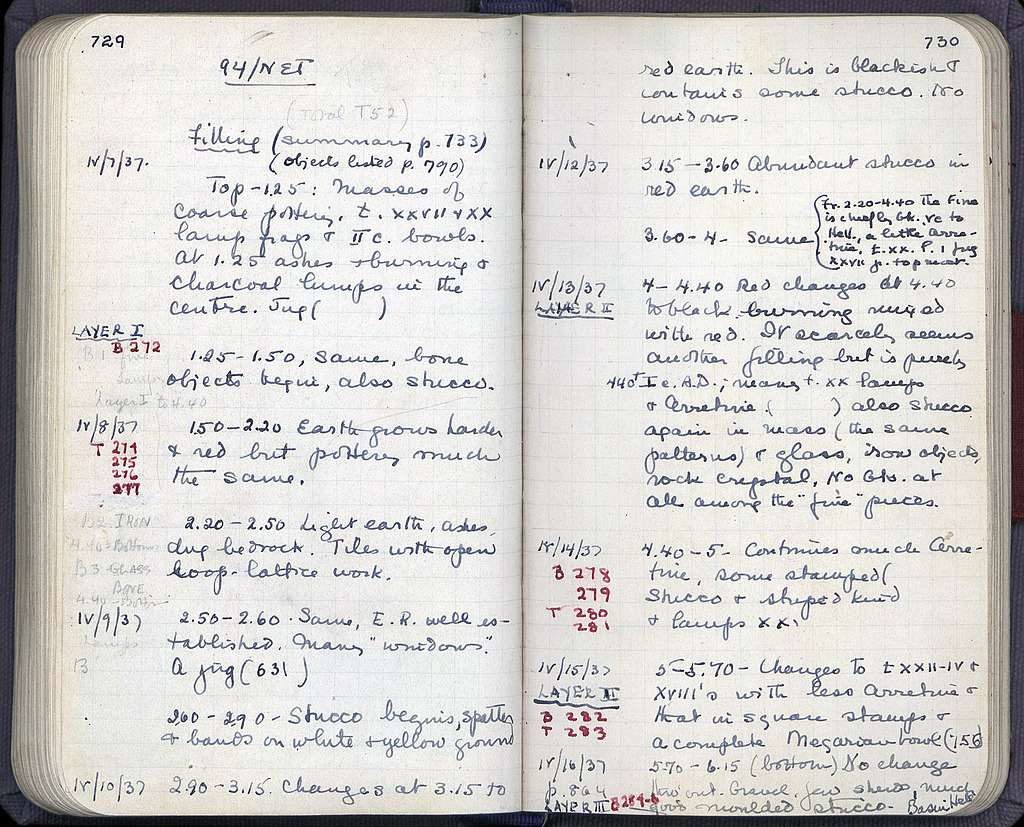 729
94/NET
(Total T52)
Filling (summary p. 733)
IV/7/37. (objects listed p. 790)
Top-1.25: Masses of
coarse pottery, t. XXVII & XX
lamp frags & II c. bowls.
At 1.25 ashes & burning &
charcoal lumps in the
centre. Jug ( )
LAYER I
B 272
B 1
1.25-1.50, same, bone
objects begin, also stucco.
Layer I to 4.40
IV/8/37 1.50-2.20 Earth grows harder
T 274 & red but pottery much
275
276 the same.
277
B2 IRON 2.20-2.50 Light earth, ashes,
4.40-Bottom dug bedrock. Tiles with open
B3 GLASS loop-lattice work.
BONE
4.40-Bottom
IV/9/37 2.50-2.60. Same, E.R. well es-
tablished. Many "windows".
B A jug (631)
2.60-2.90-Stucco begins, spatter
& bands on white & yellow ground
IV/10/37 2.90-3.15. Changes at 3.15 to
730
red earth. This is blackish &
contains some stucco. No
windows.
IV/12/37 3.15-3.60 Abundant stucco in
red earth.
3.60-4- Same
Fr. 2.20-4.40 The Fine
is chiefly Gk. Vc to
Hell., a little Arre-
tine, t. XX. P. 1 jug
XXVII fr. top recor.
IV/13/37 4-4.40 Red changes at 4.40
LAYER II to black burning mixed
with red. It scarcely seems
another filling but is purely
440+ I c. A.D.; many t. XX lamps
& Arretine. ( ) also stucco
again in mass (the same
patterns) & glass, iron objects,
rock crystal, No Gk. at
all among the "fine" pieces.
IV/14/37 4.40-5- Continues much Arre-
B 278 tine, some stamped (
279 Stucco & striped kind
T 280 & lamps XX,
281
IV/15/37 5-5.70- Changes to t XXII-IV &
LAYER III XVIII's with less Arretine &
B 282 that in square stamps &
T 283 a complete Megarian bowl (756)
IV/16/37 5.70-6.15 (bottom) No change
p. 864 Now out. Gravel. Jaw sherds, much
LAYER III B 284-6 good moulded stucco- Basin Hell.